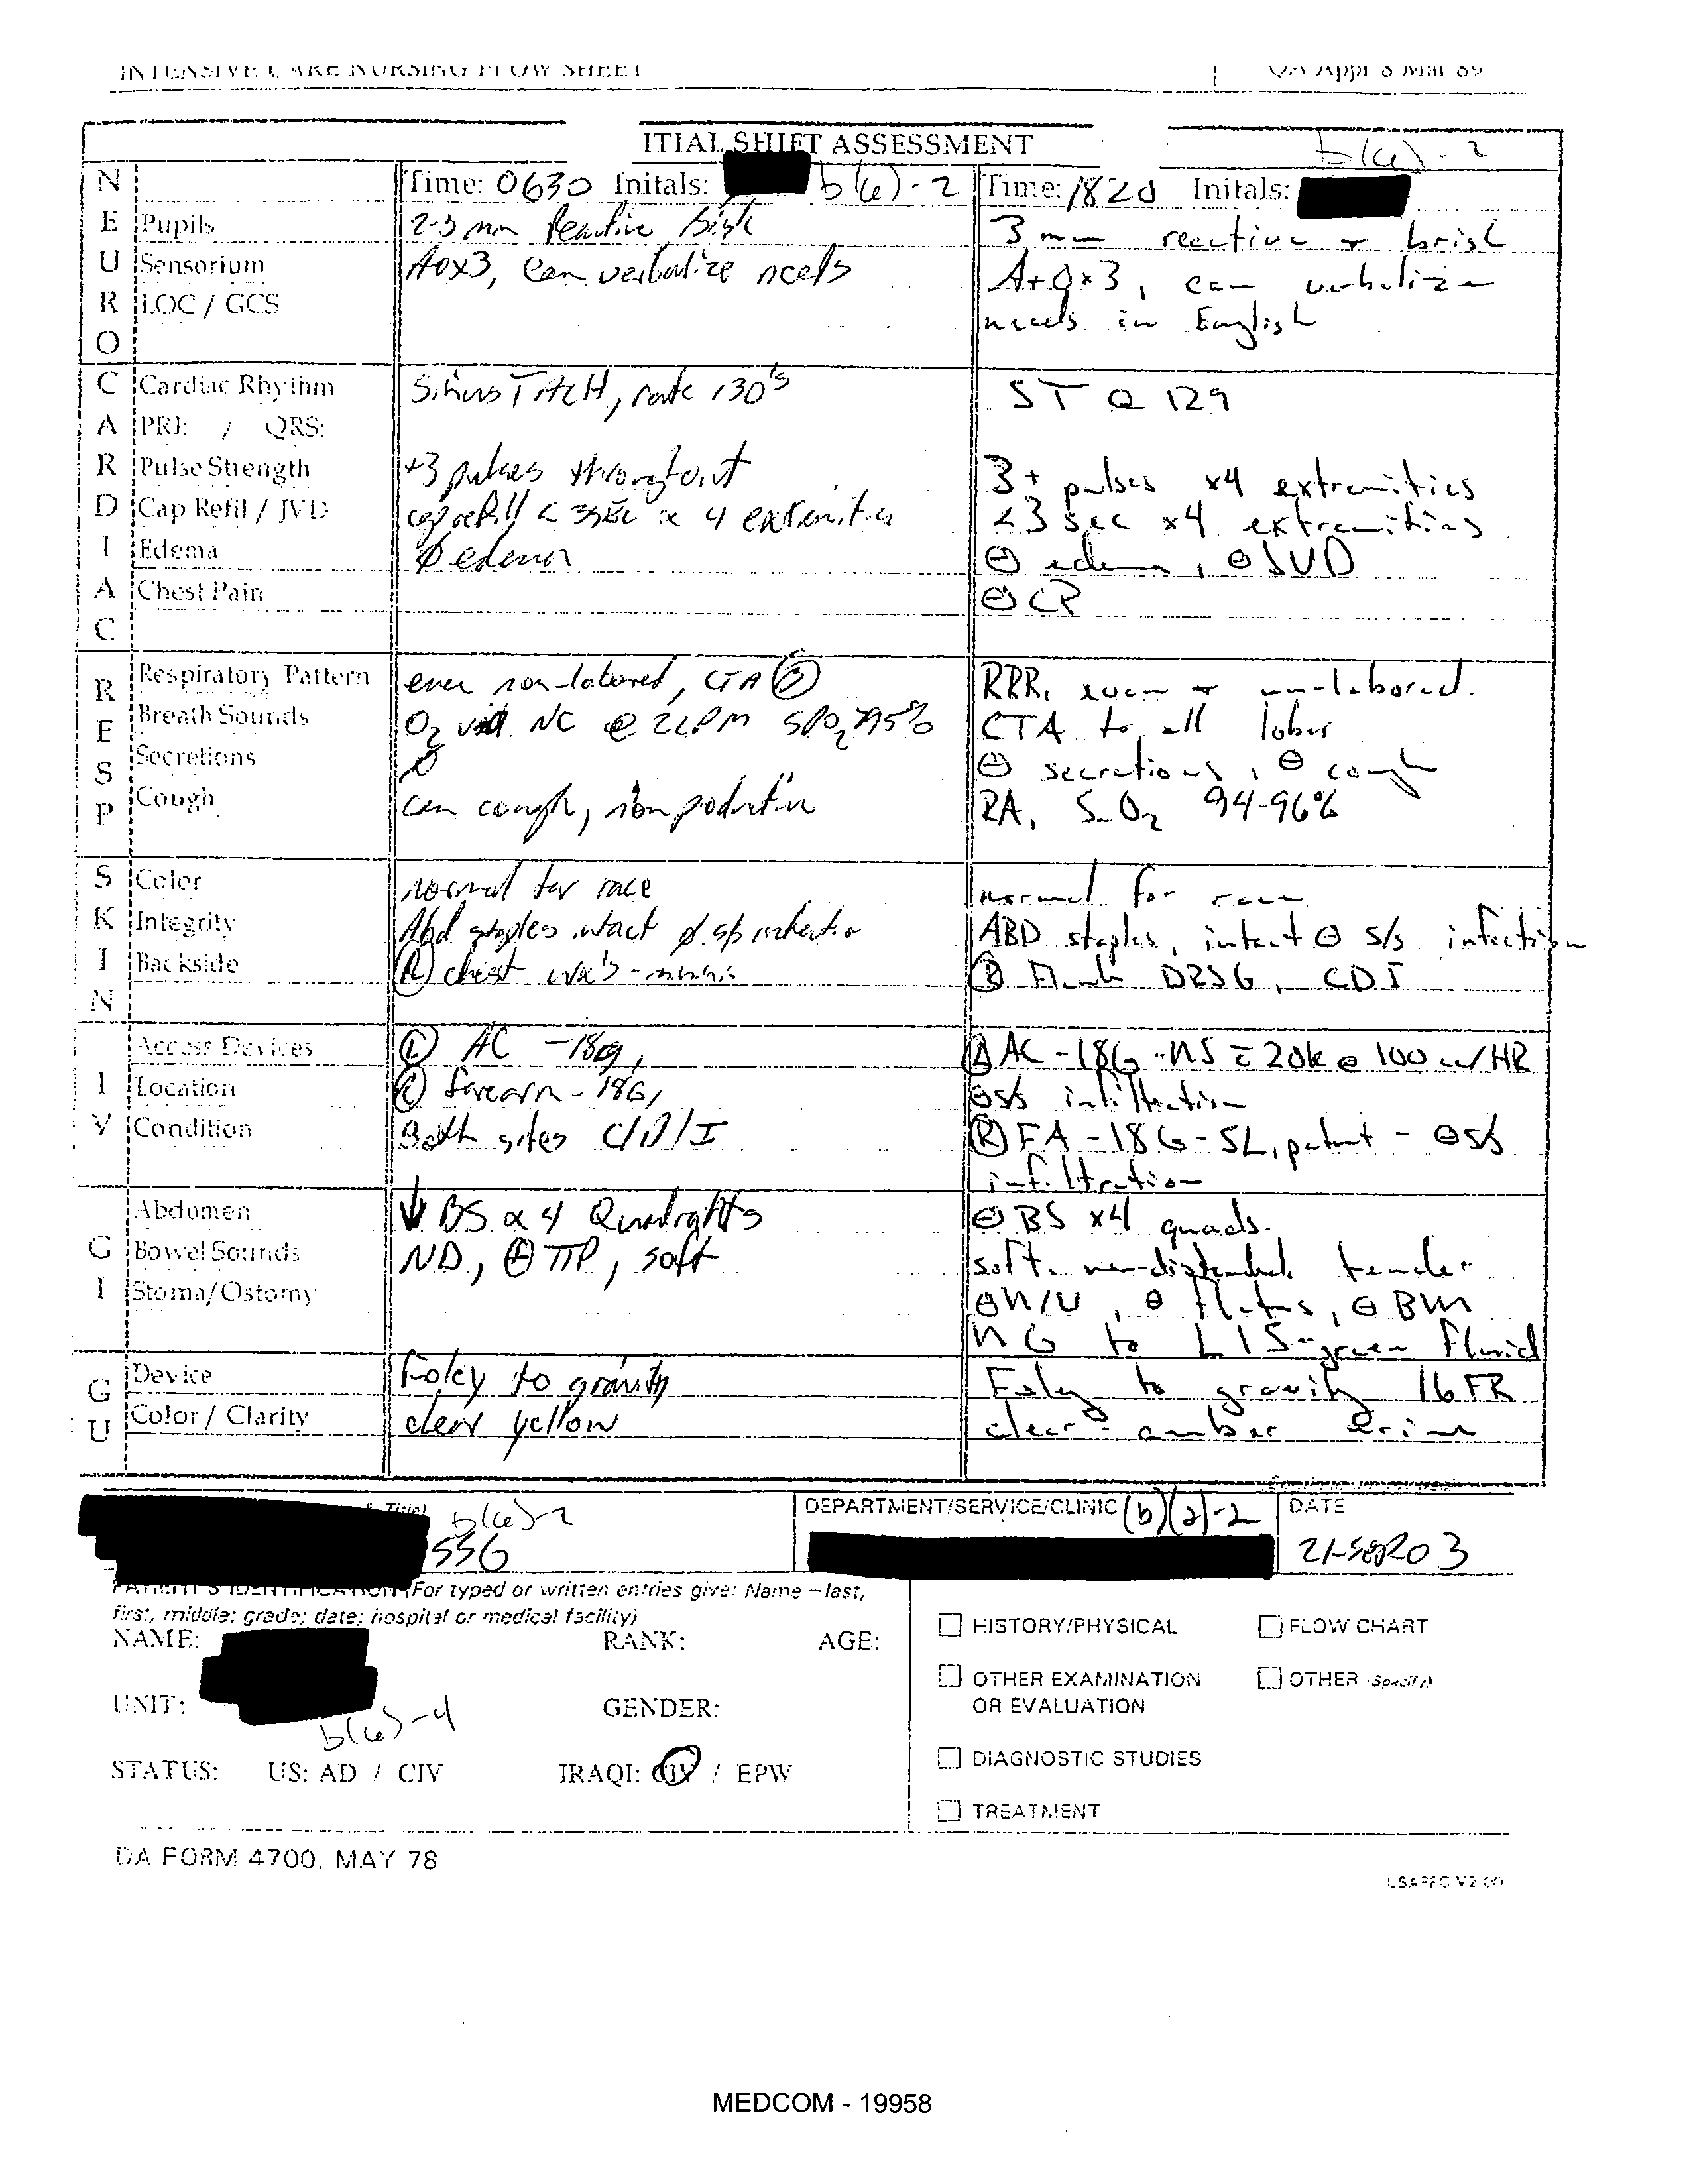 INTENSIVE CARE NURSING FLOW SHEET QA Appr 8 Mar 89
ITIAL SHIFT ASSESSMENT
b(6)-2
Time: 0630 Initals: b(6)-2 Time: 1820 Initals:
NEURO
Pupils 2-3 mm Reactive Brisk 3 mm reactive + brisk
Sensorium AOx3, can verbalize needs A+Ox3, can verbalize
LOC / GCS needs in English
CARDIAC
Cardiac Rhythm Sinus TACH, rate 130's ST @ 129
PRI: / QRS:
Pulse Strength +3 pulses throughout 3+ pulses x4 extremities
Cap Refil / JVD cap refill < 3sec x 4 extremities <3 sec x4 extremities
Edema Ø edema ⊖ edema, ⊖ JVD
Chest Pain ⊖ CP
RESP
Respiratory Pattern even non-labored, CTA Ⓑ RRR, even + un-labored.
Breath Sounds O2 via NC @ 2LPM SPO2 >95% CTA to all lobes
Secretions Ø ⊖ secretions, ⊖ cough
Cough can cough, non productive RA, SaO2 94-96%
SKIN
Color normal for race normal for race
Integrity Abd staples intact Ø s/s infection ABD staples, intact ⊖ s/s infection
Backside Ⓡ chest Ⓡ Flank DRSG, CDI
IV
Access Devices Ⓛ AC - 18g, AC - 18G - NS c̄ 20k @ 100 cc/HR
Location forearm - 18G, ⊖ s/s infiltration
Condition Both sites C/D/I Ⓡ FA - 18G - SL, patent - ⊖ s/s
infiltration
GI
Abdomen ↓ BS x 4 Quadrants ⊖ BS x4 quads.
Bowel Sounds ND, ⊕ TTP, soft soft, non-distended, tender
Stoma/Ostomy ⊖ N/V, ⊖ flatus, ⊖ BM
NG to LIS - green fluid
GU
Device Foley to gravity Foley to gravity 16 FR
Color / Clarity clear yellow clear amber urine
& Title) b(6)-2 DEPARTMENT/SERVICE/CLINIC (b)(2)-2 DATE
SSG 21 SEP 03
PATIENT'S IDENTIFICATION (For typed or written entries give: Name – last,
first, middle; grade; date; hospital or medical facility)
NAME: RANK: AGE:
UNIT: GENDER:
b(6)-4
STATUS: US: AD / CIV IRAQI: CIV / EPW
HISTORY/PHYSICAL FLOW CHART
OTHER EXAMINATION OTHER (Specify)
OR EVALUATION
DIAGNOSTIC STUDIES
TREATMENT
DA FORM 4700, MAY 78
USAPPC V2.00
MEDCOM - 19958